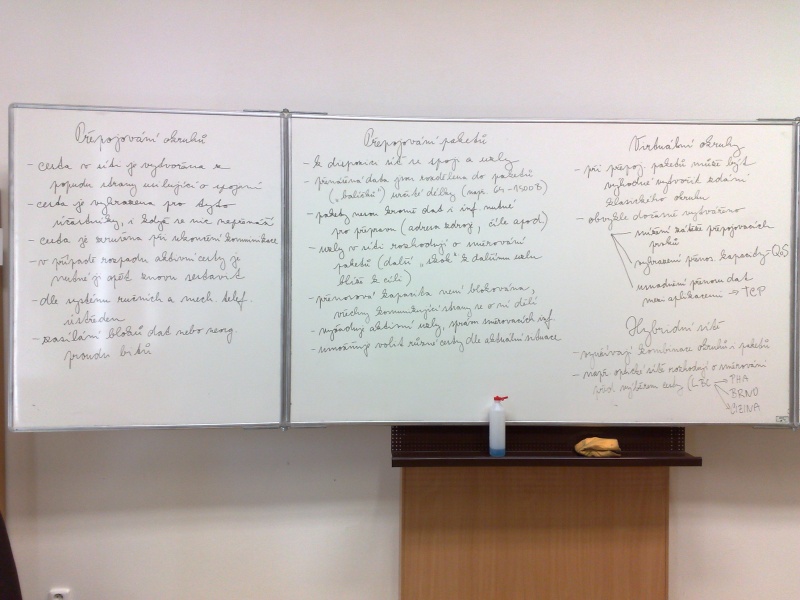 Přepojování okruhů
- cesta v síti je vytvořena z
popudu strany usilující o spojení
- cesta je vyhrazena pro tyto
účastníky, i když se nic nepřenáší
- cesta je zrušena při ukončení komunikace
- v případě rozpadu aktivní cesty je
nutné ji opět znovu sestavit
- dle systému ručních a mech. telef.
ústředen
- zasílání bloků dat nebo neorg.
proudu bitů
Přepojování paketů
- k dispozici síť se spoji a uzly
- přenášená data jsou rozdělena do paketů
("balíčků") určité délky (např. 64 - 1500 B)
- pakety nesou kromě dat i inf. nutné
pro přepravu (adresa zdroje, cíle apod)
- uzly v síti rozhodují o směrování
paketů (další "skok" k dalšímu uzlu
blíže k cíli)
- přenosová kapacita není blokována,
všechny komunikující strany se o ni dělí
- vyžaduje aktivní uzly, správu směrovacích inf.
- umožňuje volit různé cesty dle aktuální situace
Virtuální okruhy
- při přepoj. paketů může být
výhodné vytvořit zdání
klasického okruhu
- obvykle dočasně vytvářeno
snížení zátěže přepojovacích
prvků
vyhrazení přenos. kapacity - QoS
usnadnění přenosu dat
mezi aplikacemi → TCP
Hybridní sítě
- využívají kombinace okruhů i paketů
- např. optické sítě rozhodují o směrování
výběrem cesty (LBC → PHA
BRNO